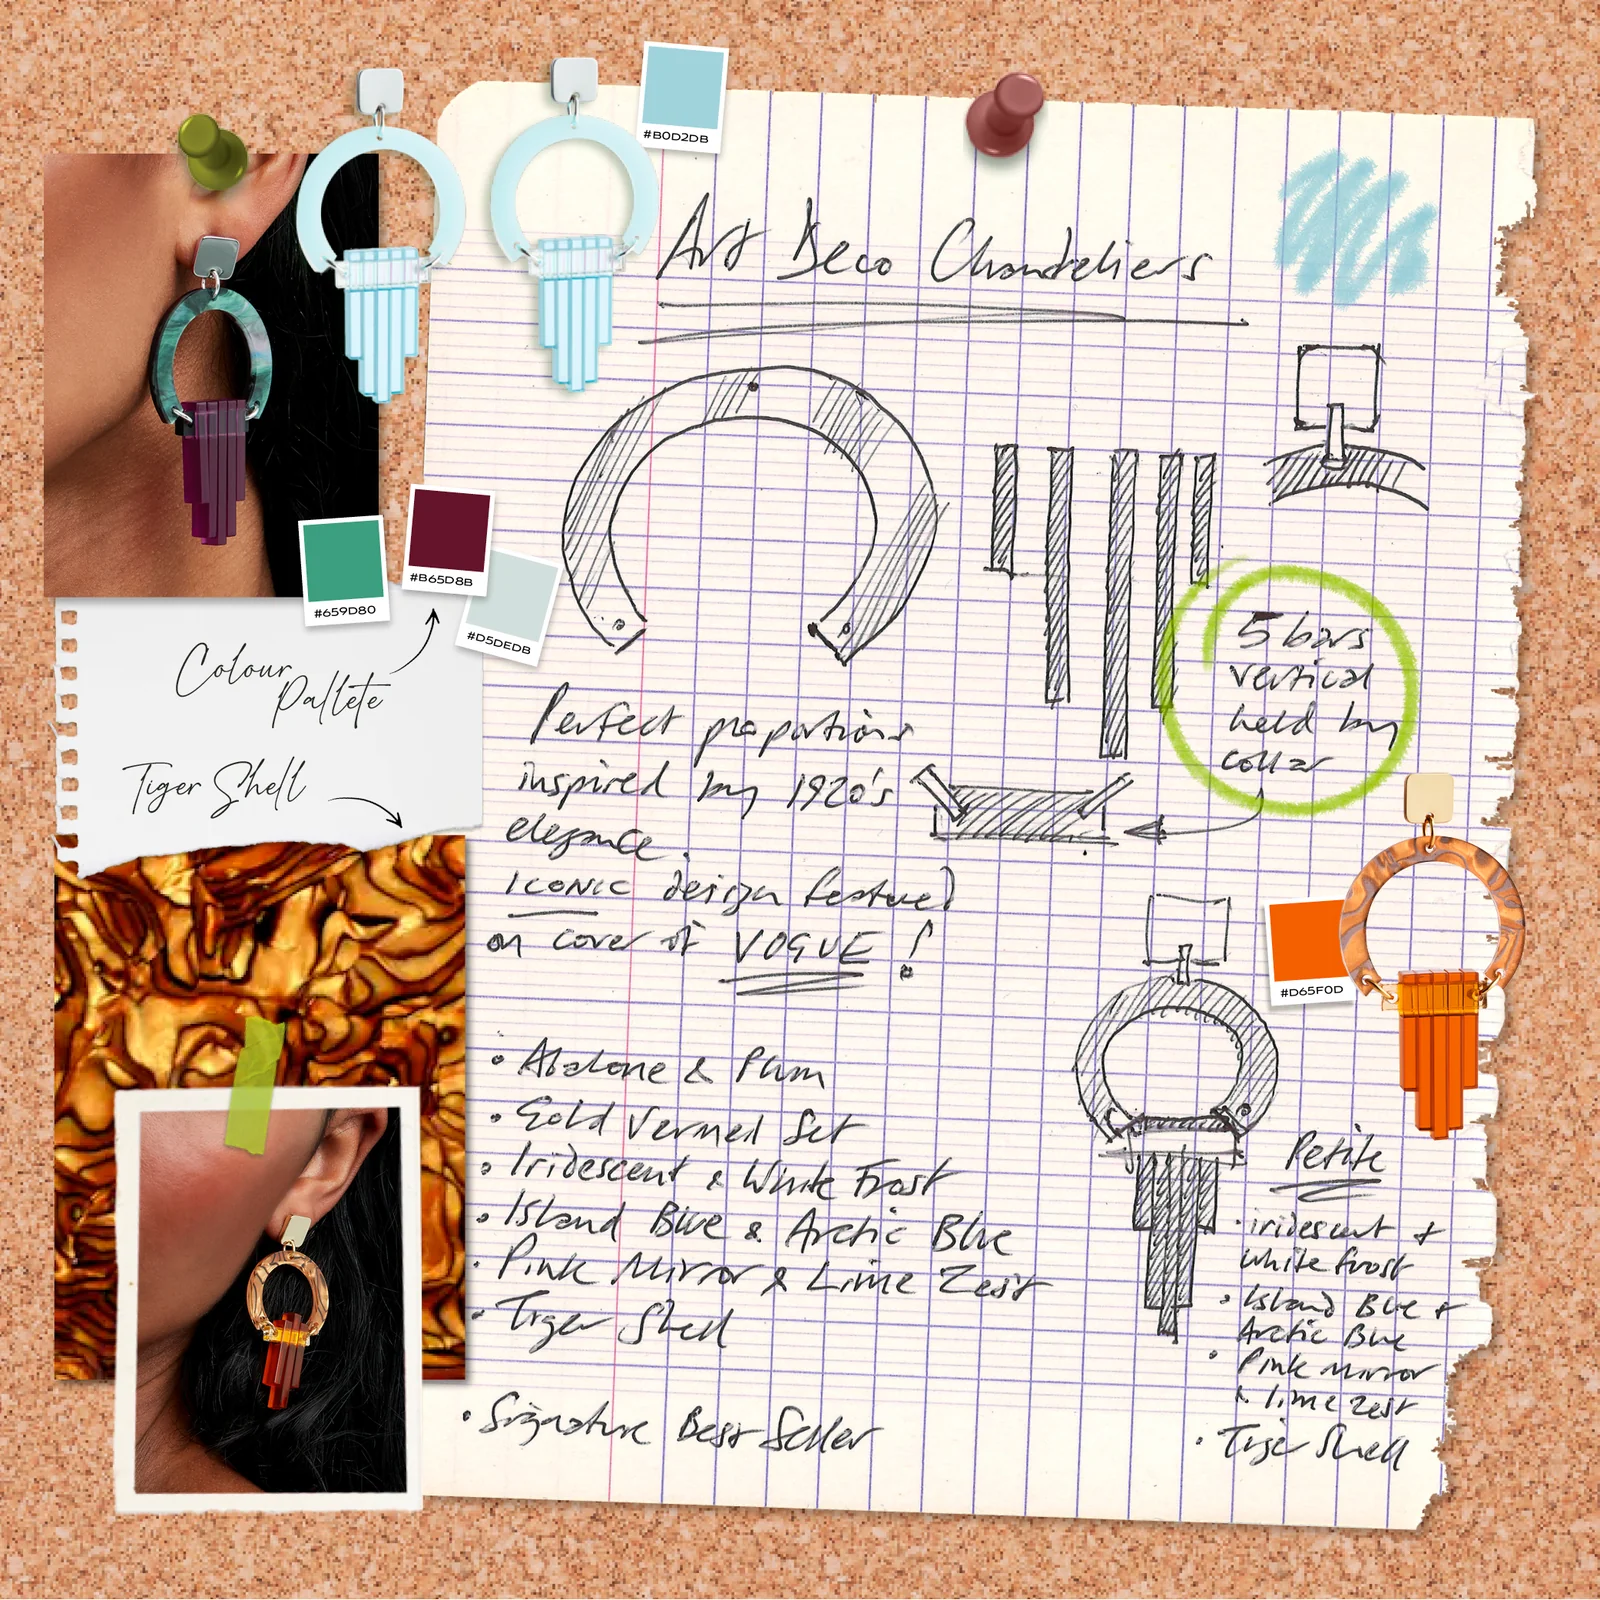 #B0D2DB
Art Deco Chandeliers
#659D80
#B65D8B
#D5DEDB
Colour
Pallete
Tiger Shell
5 bars
vertical
held by
collar
Perfect proportions
inspired by 1920's
elegance.
ICONIC design featured
on cover of VOGUE!
#D65F0D
• Abalone & Plum
• Gold Vermeil Set
• Iridescent & White Frost
• Island Blue & Arctic Blue
• Pink Mirror & Lime Zest
• Tiger Shell
• Signature Best Seller
Petite
• iridescent +
white frost
• Island Blue +
Arctic Blue
• Pink mirror
& lime zest
• Tiger Shell